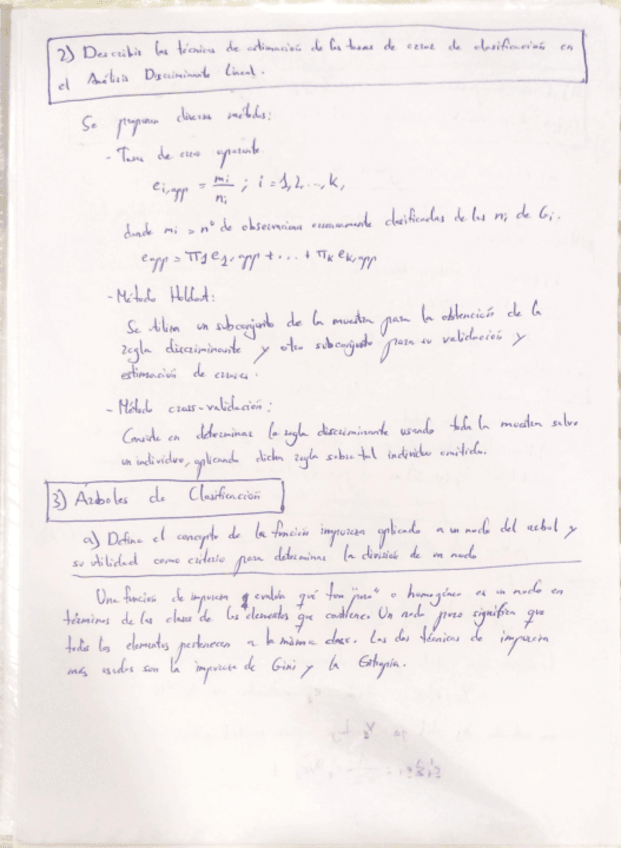 2) Describir las técnicas de estimación de las tasas de error de clasificación en
el Análisis Discriminante Lineal.
Se proponen diversos métodos:
- Tasa de error aparente
e_{i,app} = m_i / n_i ; i = 1, 2 ..., k,
donde m_i = nº de observaciones erróneamente clasificadas de las n_i de G_i.
e_app = π_1 e_{1,app} + ... + π_k e_{k,app}
- Método Holdout:
Se utiliza un subconjunto de la muestra para la obtención de la
regla discriminante y otro subconjunto para su validación y
estimación de errores.
- Método cross-validación:
Consiste en determinar la regla discriminante usando toda la muestra salvo
un individuo, aplicando dicha regla sobre tal individuo omitido.
3) Árboles de Clasificación
a) Define el concepto de la función impureza aplicado a un nodo del arbol y
su utilidad como criterio para determinar la división de un nodo
Una función de impureza evalúa qué tan "puro" o homogéneo es un nodo en
términos de las clases de los elementos que contiene. Un nodo puro significa que
todos los elementos pertenecen a la misma clase. Las dos técnicas de impureza
más usadas son la impureza de Gini y la Entropía.